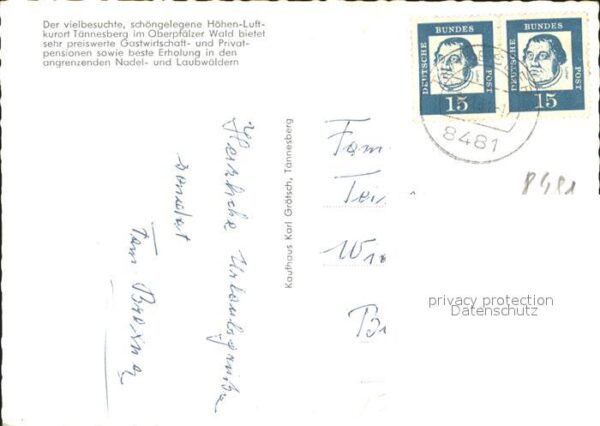 Der vielbesuchte, schöngelegene Höhen-Luft-
kurort Tännesberg im Oberpfälzer Wald bietet
sehr preiswerte Gastwirtschaft- und Privat-
pensionen sowie beste Erholung in den
angrenzenden Nadel- und Laubwäldern
DEUTSCHE BUNDES POST
15
DEUTSCHE BUNDES POST
15
8481
8481
Herzliche Urlaubsgrüße
sendet
Fam
Kaufhaus Karl Grötsch, Tännesberg
Fam
privacy protection
Datenschutz